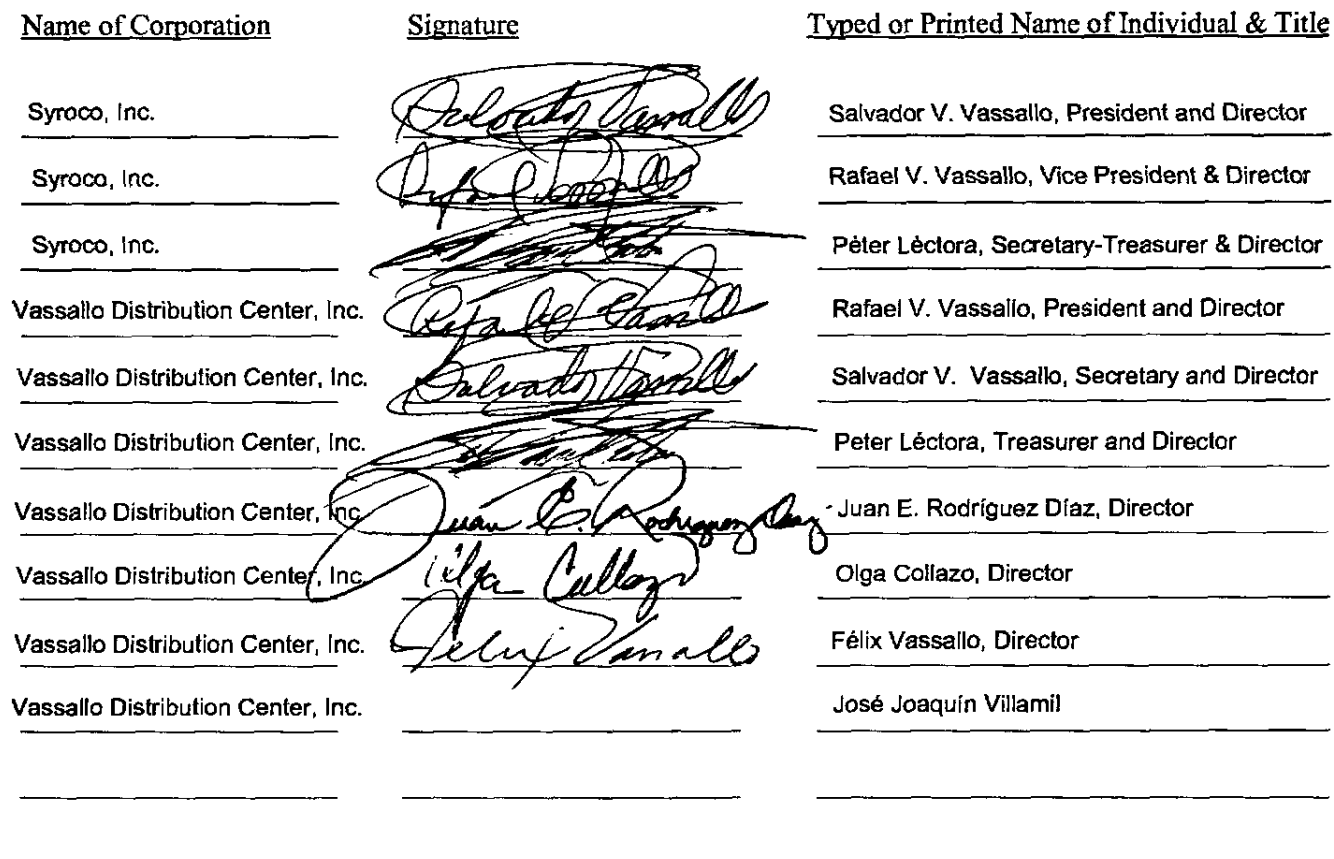 Name of Corporation Signature Typed or Printed Name of Individual & Title
Syroco, Inc. Salvador Vassallo Salvador V. Vassallo, President and Director
Syroco, Inc. Rafael Vassallo Rafael V. Vassallo, Vice President & Director
Syroco, Inc. Péter Léctora, Secretary-Treasurer & Director
Vassallo Distribution Center, Inc. Rafael Vassallo Rafael V. Vassallo, President and Director
Vassallo Distribution Center, Inc. Salvador Vassallo Salvador V. Vassallo, Secretary and Director
Vassallo Distribution Center, Inc. Peter Léctora, Treasurer and Director
Vassallo Distribution Center, Inc. Juan E. Rodriguez Diaz Juan E. Rodríguez Díaz, Director
Vassallo Distribution Center, Inc. Olga Collazo Olga Collazo, Director
Vassallo Distribution Center, Inc. Felix Vassallo Félix Vassallo, Director
Vassallo Distribution Center, Inc. José Joaquín Villamil